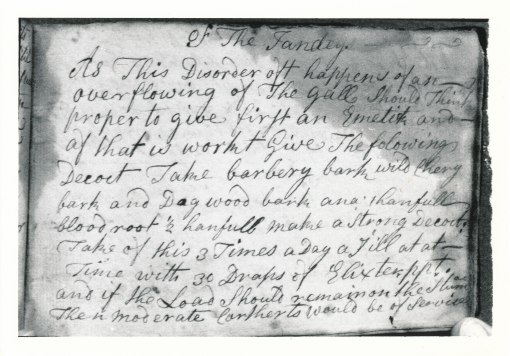 Of The Jandey.
As This Disorder oft happens of an
overflowing of The gall Should Think
proper to give first an Emetik and
af that is workt Give The folowing
Decoct Take barbery bark wild Chery
bark and Dagwood bark ana: hanfull
bloodroot ½ hanfull make a Strong Decoct
Take of this 3 Times a Day a Jill at at
Time with 30 Draps of Elix
and if the Load Should remain on the
Then moderate Cartherts would be of Service